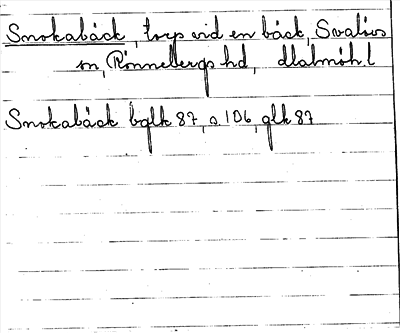 Snokabäck, torp vid en bäck, Svalövs
sn, Rönnebergs hd, Malmöh. l
Snokabäck bglk 87, a 106, glk 87